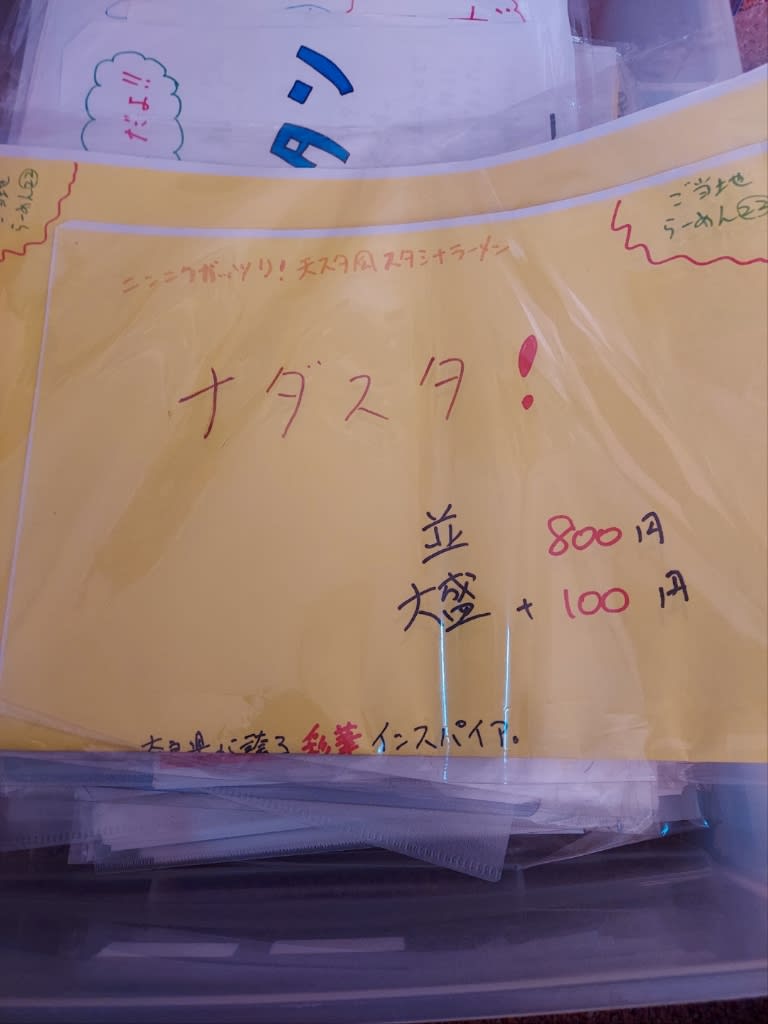 だよ!!
タン
ご当地
らーめん㉓
ご当地
らーめん㉓
ニンニクガッツリ! 天スタ風スタミナラーメン
ナダスタ!
並 800円
大盛 + 100円
誇る 彩華 インスパイア。